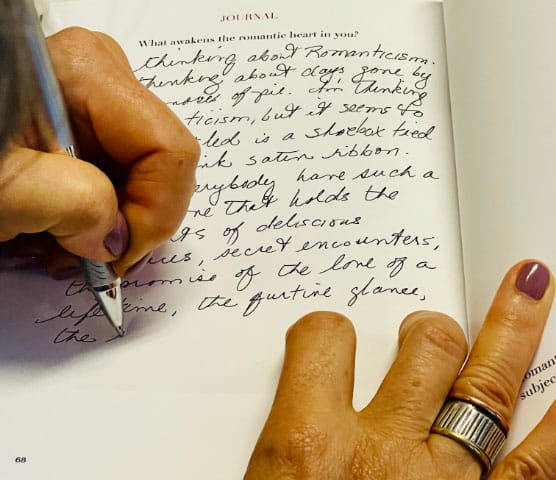 JOURNAL
What awakens the romantic heart in you?
thinking about Romanticism.
thinking about days gone by
of pie. I'm thinking
ticism, but it seems to
led is a shoebox tied
nk satin ribbon.
rybody have such a
ne that holds the
ts of delicious
ces, secret encounters,
the promise of the love of a
lifetime, the furtive glance,
the
romant
subjec
68